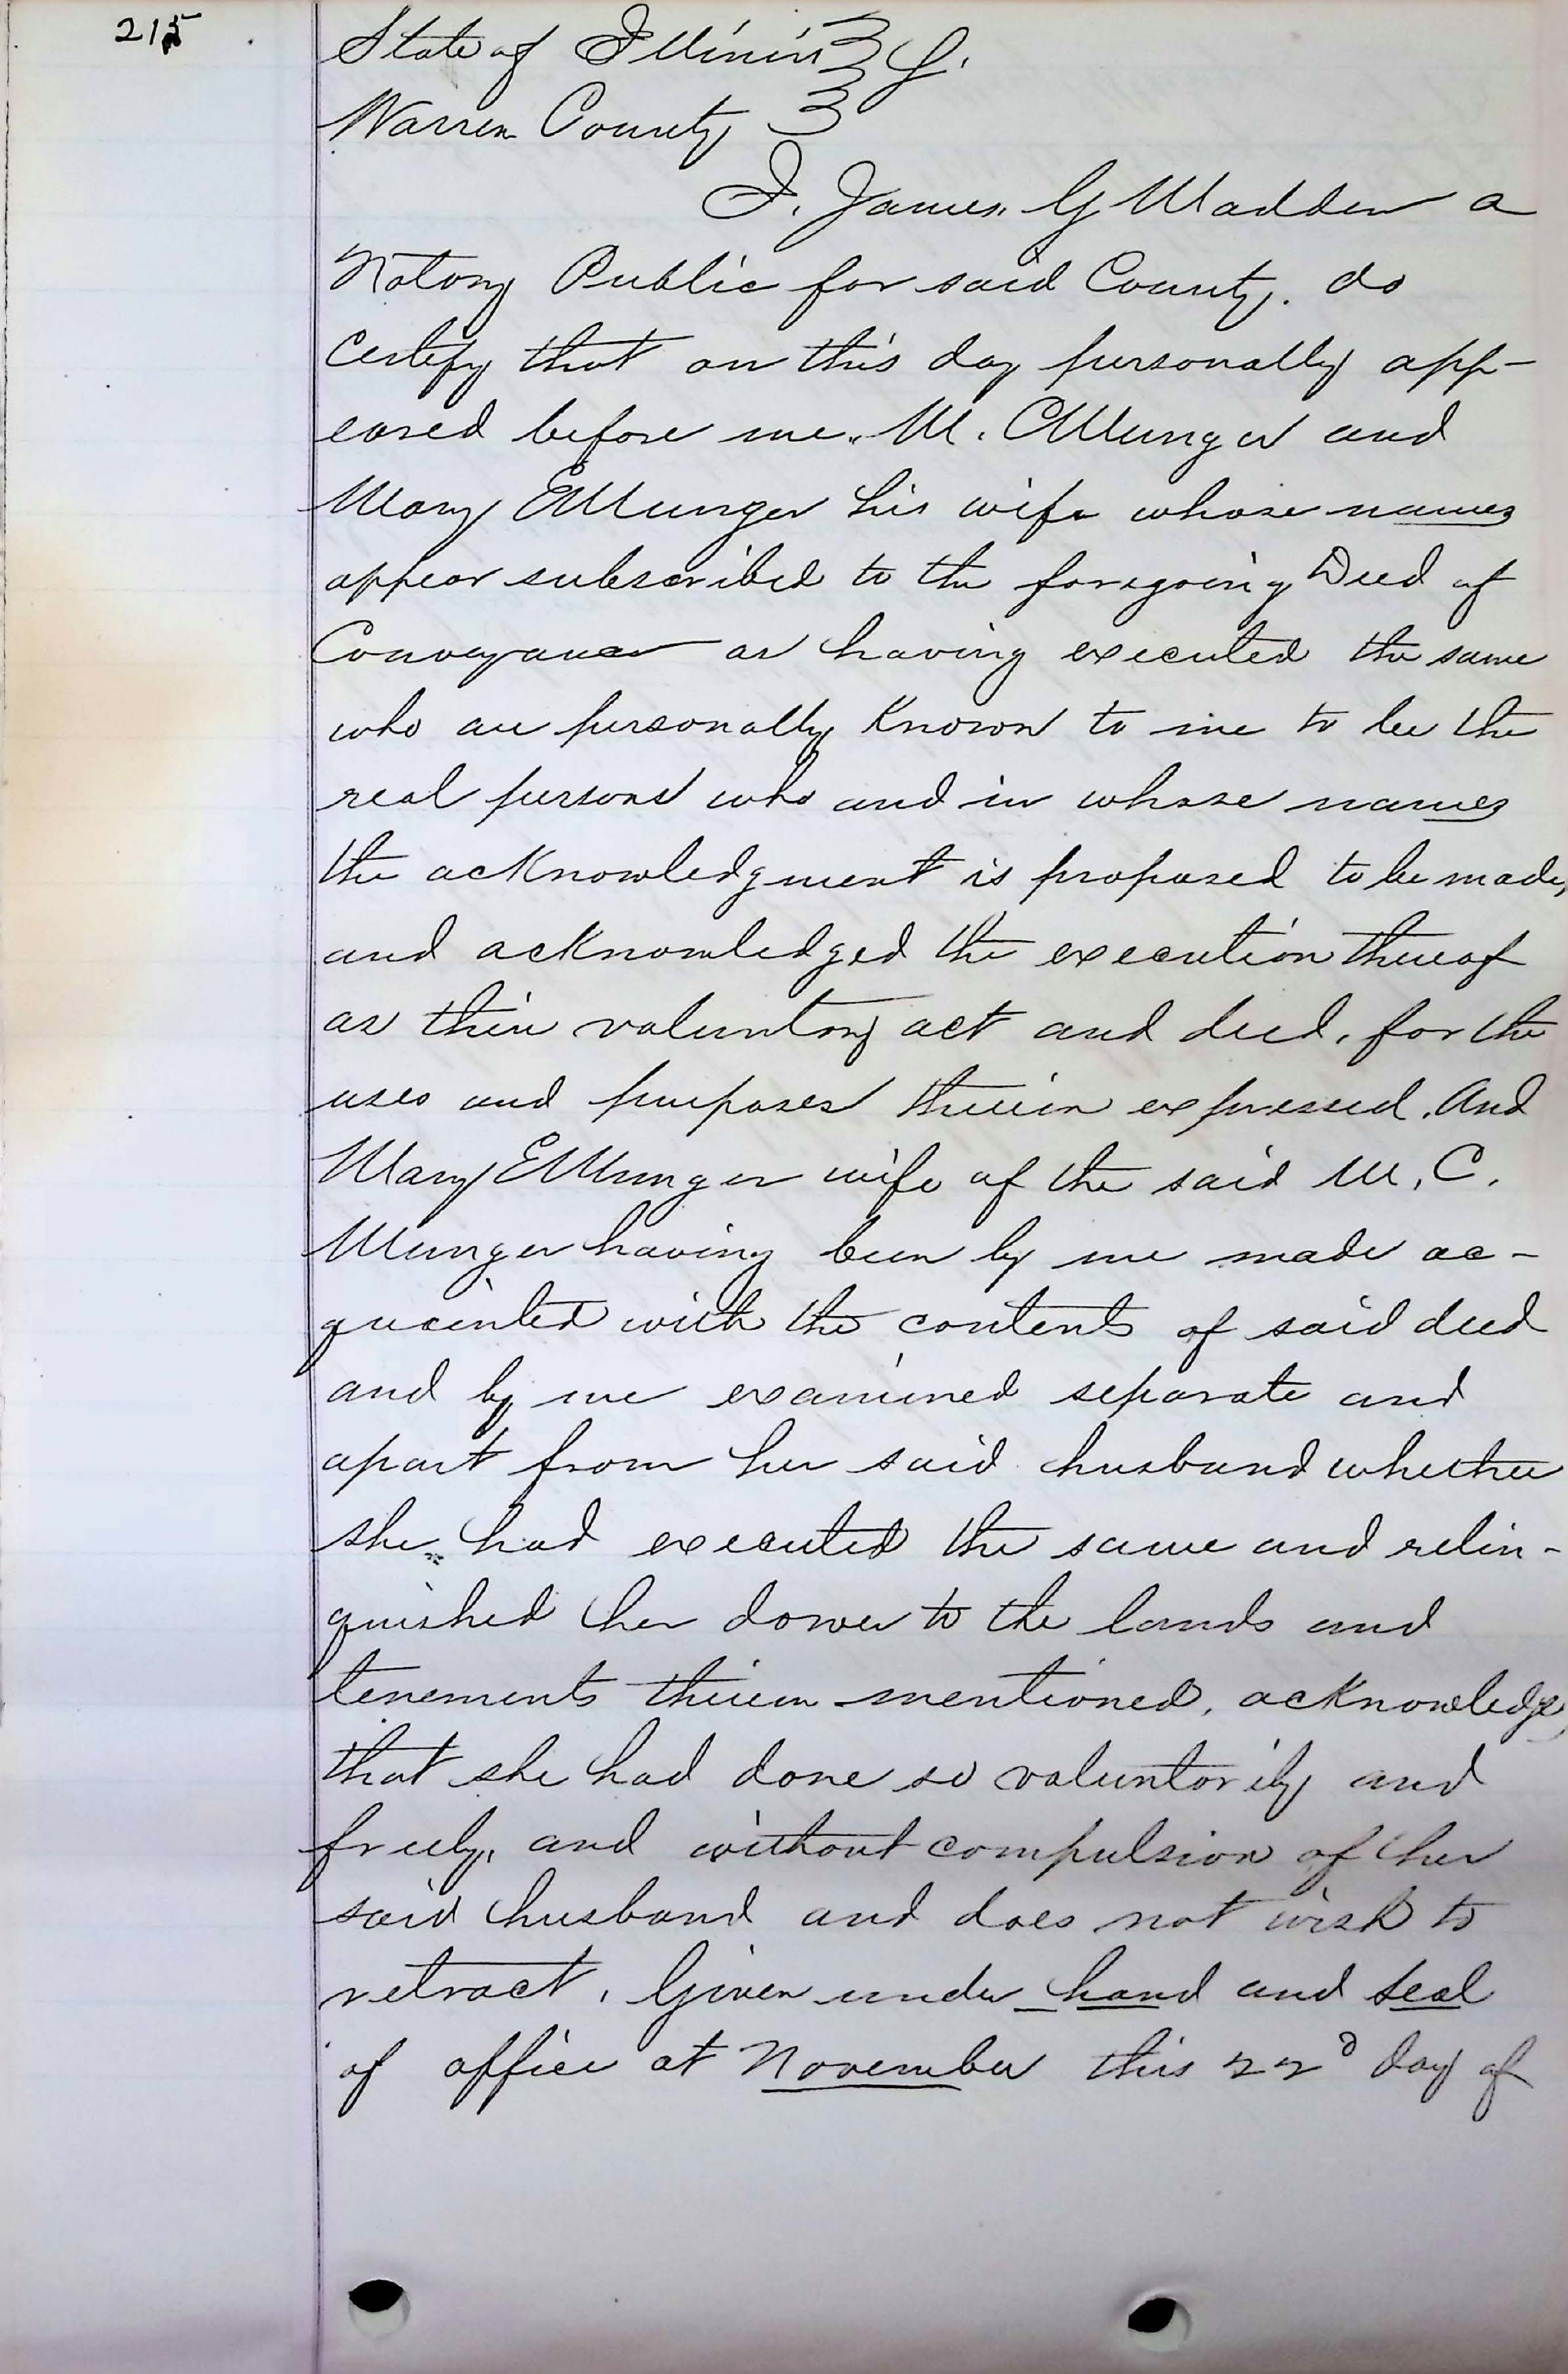 215
State of Illinois
Warren County
I, James, G Madden a
Notary Public for said County. do
certify that on this day personally app-
eared before me. M. C Munger and
Mary E Munger his wife whose names
appear subscribed to the foregoing Deed of
Conveyance as having executed the same
who are personally Known to me to be the
real persons who and in whose names
the acKnowledgment is proposed to be made,
and acKnowledged the execution thereof
as their voluntary act and deed, for the
uses and purposes therein expressed. And
Mary E Munger wife of the said M. C.
Munger having been by me made ac-
quainted with the contents of said deed
and by me examined separate and
apart from her said husband whether
she had executed the same and relin-
quished her dower to the lands and
tenements therein mentioned, acKnowledge
that she had done so voluntarily and
freely, and without compulsion of her
said husband and does not wish to
retract, Given under hand and seal
of office at November this 22d day of